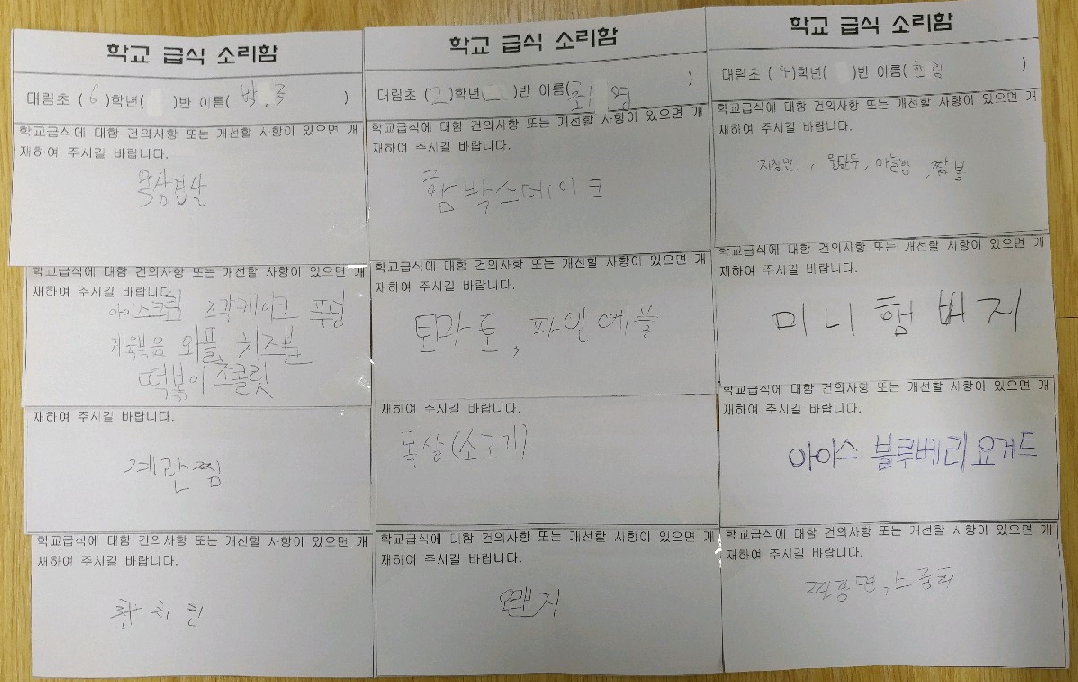 학교 급식 소리함
대림초 ( 6 )학년( )반 이름( 박 )
학교급식에 대한 건의사항 또는 개선할 사항이 있으면 개
재하여 주시길 바랍니다.
통삼겹살
학교급식에 대한 건의사항 또는 개선할 사항이 있으면 개
재하여 주시길 바랍니다.
아이스크림 조각케이크 푸딩
제육볶음 와플, 치즈볼
떡볶이 초콜릿
재하여 주시길 바랍니다.
계란찜
학교급식에 대한 건의사항 또는 개선할 사항이 있으면 개
재하여 주시길 바랍니다.
학교 급식 소리함
대림초 ( 2 )학년( )반 이름( 최 영 )
학교급식에 대한 건의사항 또는 개선할 사항이 있으면 개
재하여 주시길 바랍니다.
함박스테이크
학교급식에 대한 건의사항 또는 개선할 사항이 있으면 개
재하여 주시길 바랍니다.
토마토, 파인애플
재하여 주시길 바랍니다.
목살(소고기)
학교급식에 대한 건의사항 또는 개선할 사항이 있으면 개
재하여 주시길 바랍니다.
오렌지
학교 급식 소리함
대림초 ( 4 )학년( )반 이름( )
학교급식에 대한 건의사항 또는 개선할 사항이 있으면 개
재하여 주시길 바랍니다.
물만두, 마늘빵, 짬뽕
학교급식에 대한 건의사항 또는 개선할 사항이 있으면 개
재하여 주시길 바랍니다.
미니 햄버거
학교급식에 대한 건의사항 또는 개선할 사항이 있으면 개
재하여 주시길 바랍니다.
아이스 블루베리 요거트
학교급식에 대한 건의사항 또는 개선할 사항이 있으면 개
재하여 주시길 바랍니다.